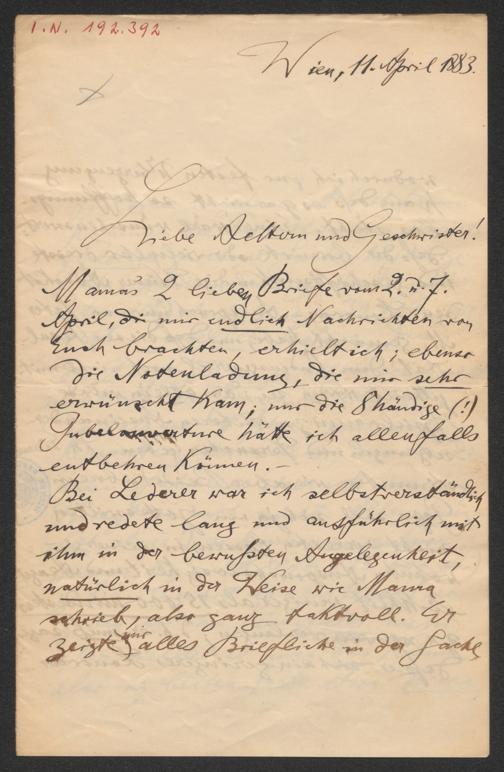 I.N. 192.392
Wien, 11. April 1883.
Liebe Aeltern und Geschwister!
Mamas 2 lieben Briefe vom 2. u. 7.
April, di mir endlich Nachrichten von
Euch brachten, erhielt ich; ebenso
die Notenladung, die mir sehr
erwünscht kam; nur die 8händige (!)
Jubelouverture hätte ich allenfalls
entbehren können. –
Bei Lederer war ich selbstverständlich
und redete lang und ausführlich mit
ihm in der bewußten Angelegenheit,
natürlich in der Weise wie Mama
schrieb, also ganz taktvoll. Er
zeigte mir alles Briefliche in der Sache